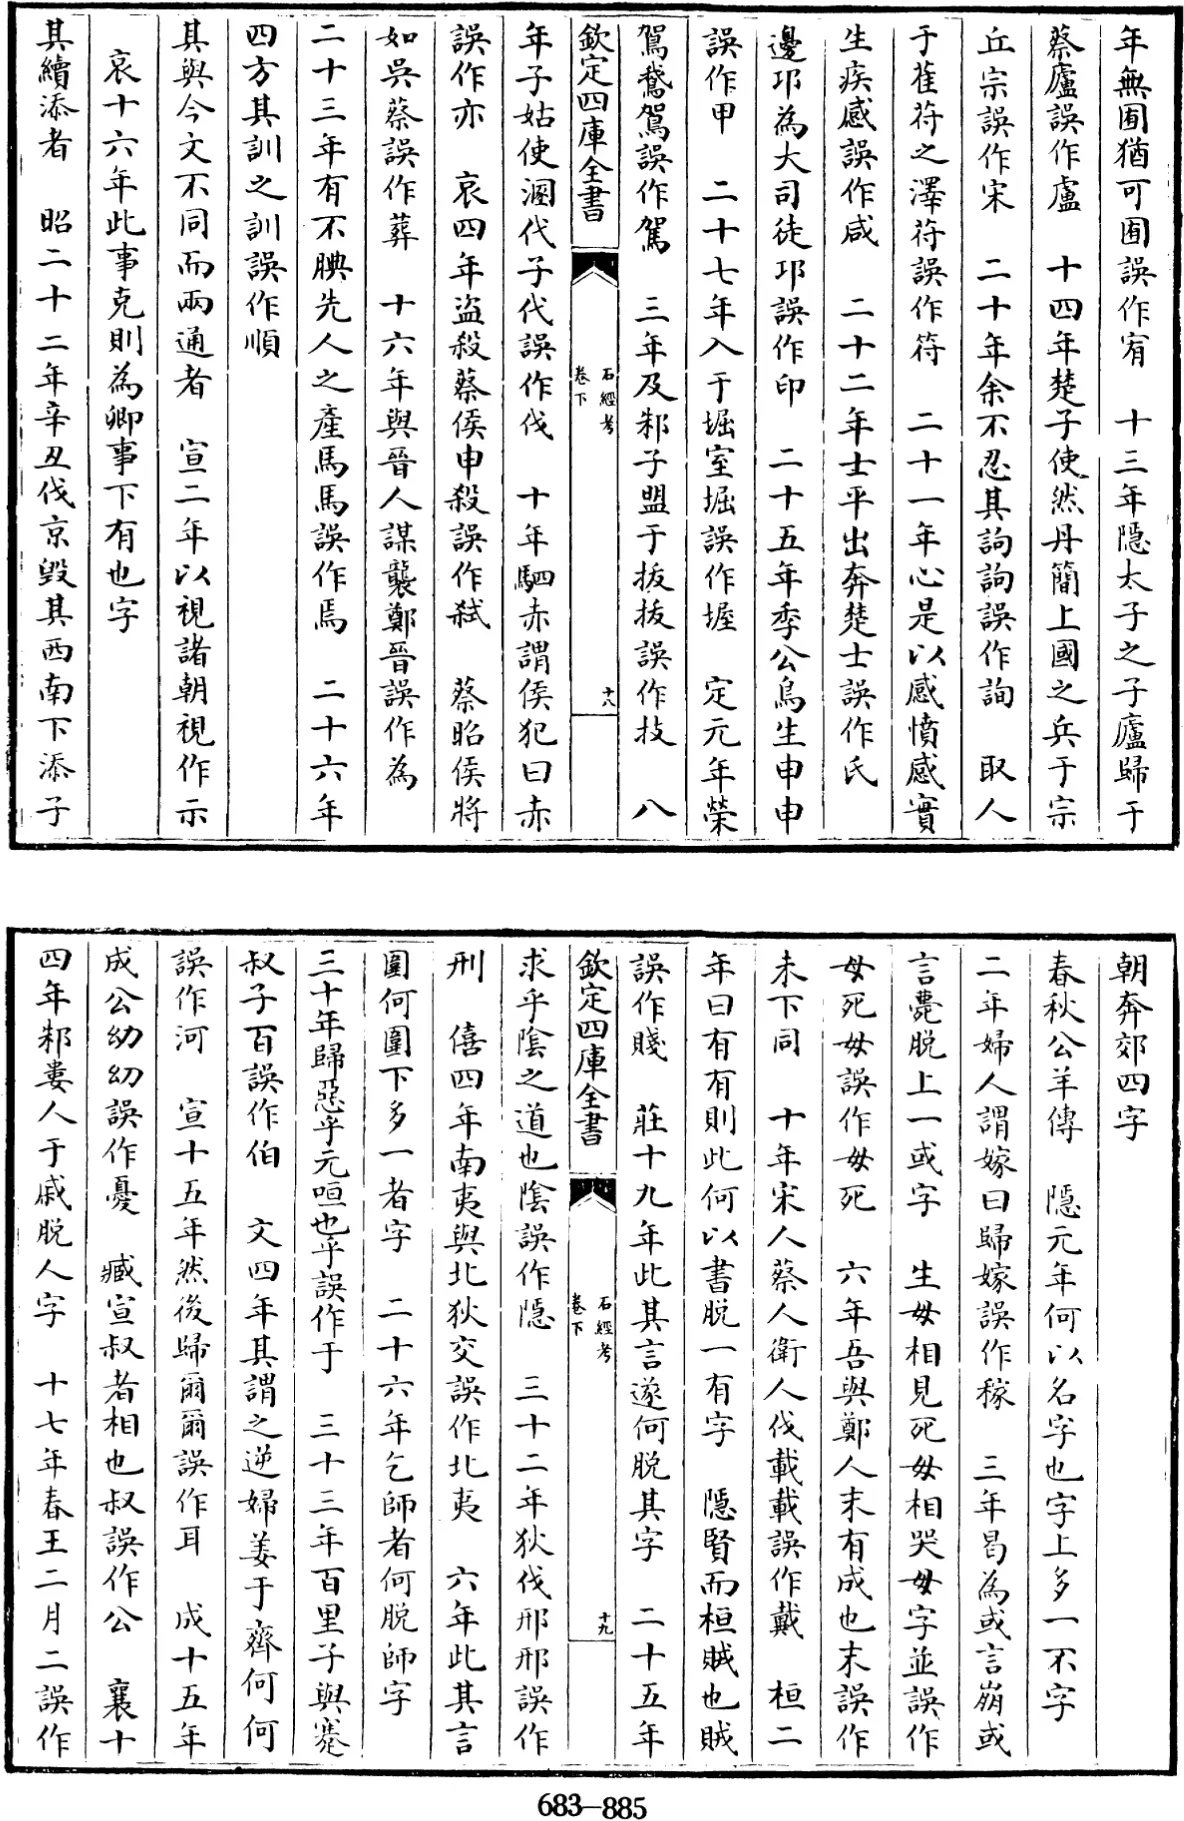 年無囿猶可囿誤作宥　十三年隱太子之子廬歸于
蔡廬誤作盧　十四年楚子使然丹簡上國之兵于宗
丘宗誤作宋　二十年余不忍其訽訽誤作詢　取人
于萑苻之澤苻誤作符　二十一年心是以感憤感實
生疾感誤作咸　二十二年士平出奔楚士誤作氏
邊卭為大司徒卭誤作印　二十五年季公鳥生申申
誤作甲　二十七年入于堀室堀誤作堀　定元年榮
鴐鵞鴐誤作駕　三年及邾子盟于拔拔誤作技　八
欽定四庫全書
石經考
卷下
十八
年子姑使溷代子代誤作伐　十年駟赤謂侯犯曰赤
誤作亦　哀四年盜殺蔡侯申殺誤作弑　蔡昭侯將
如吳蔡誤作葬　十六年與晉人謀襲鄭晉誤作為
二十三年有不腆先人之產馬馬誤作焉　二十六年
四方其訓之訓誤作順
其與今文不同而兩通者　宣二年以視諸朝視作示
哀十六年此事克則為卿事下有也字
其續添者　昭二十二年辛丑伐京毀其西南下添子
朝奔郊四字
春秋公羊傳　隱元年何以名字也字上多一不字
二年婦人謂嫁曰歸嫁誤作稼　三年曷為或言崩或
言薨脫上一或字　生毋相見死毋相哭毋字並誤作
母死毋誤作母死　六年吾與鄭人末有成也末誤作
未下同　十年宋人蔡人衛人伐載載誤作戴　桓二
年曰有有則此何以書脫一有字　隱賢而桓賊也賊
誤作賤　莊十九年此其言遂何脫其字　二十五年
欽定四庫全書
石經考
卷下
十九
求乎陰之道也陰誤作隱　三十二年狄伐邢邢誤作
刑　僖四年南夷與北狄交誤作北夷　六年此其言
圍何圍下多一者字　二十六年乞師者何脫師字
三十年歸惡乎元咺也乎誤作于　三十三年百里子與蹇
叔子百誤作伯　文四年其謂之逆婦姜于齊何何
誤作河　宣十五年然後歸爾爾誤作耳　成十五年
成公幼幼誤作憂　臧宣叔者相也叔誤作公　襄十
四年邾婁人于戚脫人字　十七年春王二月二誤作
683—885